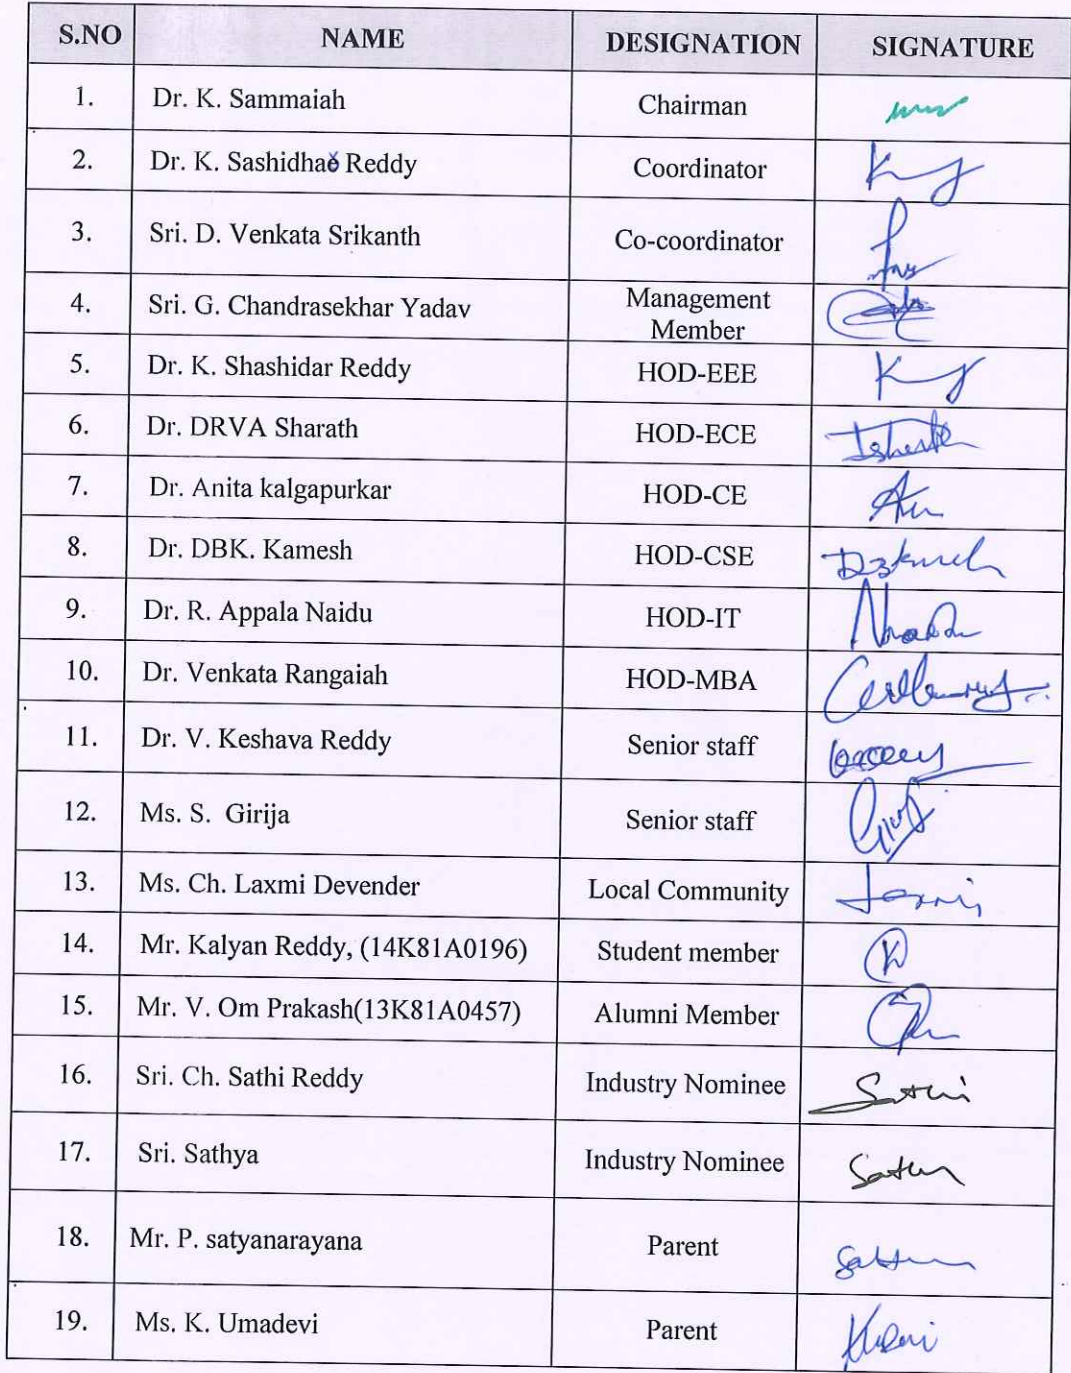 S.NO NAME DESIGNATION SIGNATURE
1. Dr. K. Sammaiah Chairman
2. Dr. K. Sashidhar Reddy Coordinator
3. Sri. D. Venkata Srikanth Co-coordinator
4. Sri. G. Chandrasekhar Yadav Management
Member
5. Dr. K. Shashidar Reddy HOD-EEE
6. Dr. DRVA Sharath HOD-ECE
7. Dr. Anita kalgapurkar HOD-CE
8. Dr. DBK. Kamesh HOD-CSE
9. Dr. R. Appala Naidu HOD-IT
10. Dr. Venkata Rangaiah HOD-MBA
11. Dr. V. Keshava Reddy Senior staff
12. Ms. S. Girija Senior staff
13. Ms. Ch. Laxmi Devender Local Community
14. Mr. Kalyan Reddy, (14K81A0196) Student member
15. Mr. V. Om Prakash(13K81A0457) Alumni Member
16. Sri. Ch. Sathi Reddy Industry Nominee
17. Sri. Sathya Industry Nominee
18. Mr. P. satyanarayana Parent
19. Ms. K. Umadevi Parent